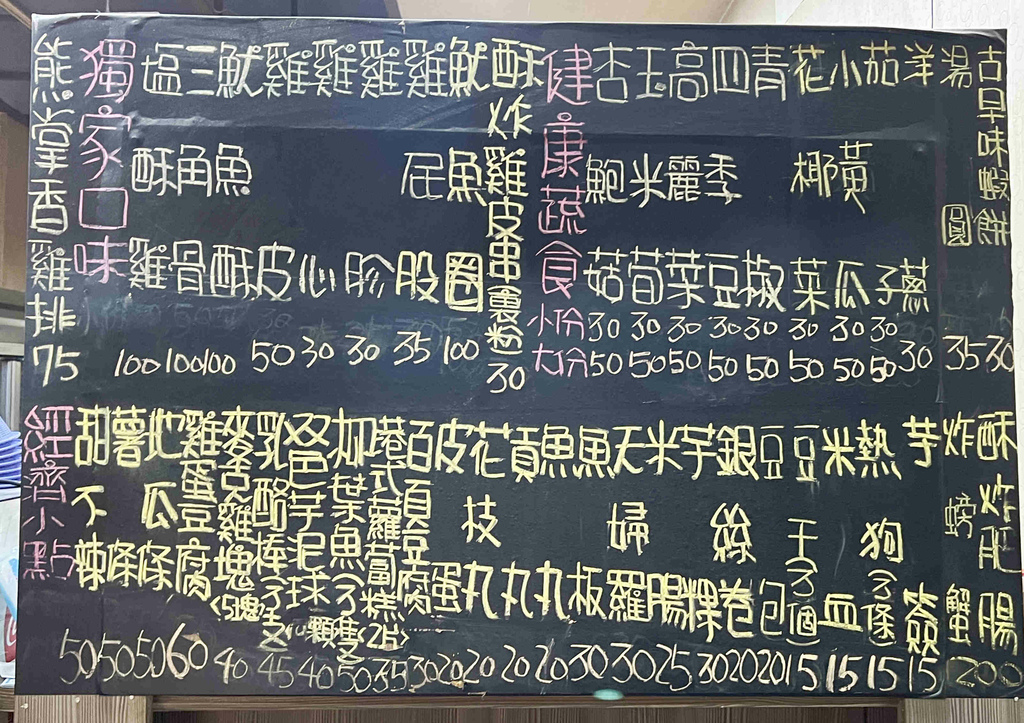 熊掌香雞排 75
獨家口味
塩酥雞 100
三角骨 100
魷魚酥 100
雞皮 50
雞心 30
雞胗 30
雞屁股 35
魷魚圈 100
酥炸雞皮串裹粉 30
健康蔬食 小份 大份
杏鮑菇 30 50
玉米筍 30 50
高麗菜 30 50
四季豆 30 50
青椒 30 50
花椰菜 30 50
小黃瓜 30 50
茄子 30 50
洋蔥 30
湯圓 35
古早味蝦餅 30
經濟小點
甜不辣 50
薯條 50
地瓜條 50
雞蛋豆腐 60
麥香雞塊<5塊> 40
乳酪棒3支 45
色芋泥球 顆 40
柳葉魚3隻 50
港式蘿蔔糕<2片> 35
百頁豆腐 30
皮蛋 20
花枝丸 20
貢丸 20
魚丸 20
魚板 30
天婦羅 30
米腸 25
芋粿 30
銀絲卷 20
豆包 20
豆干3個 15
米血 15
熱狗3條 15
芋簽 15
炸螃蟹
酥炸肥腸 200